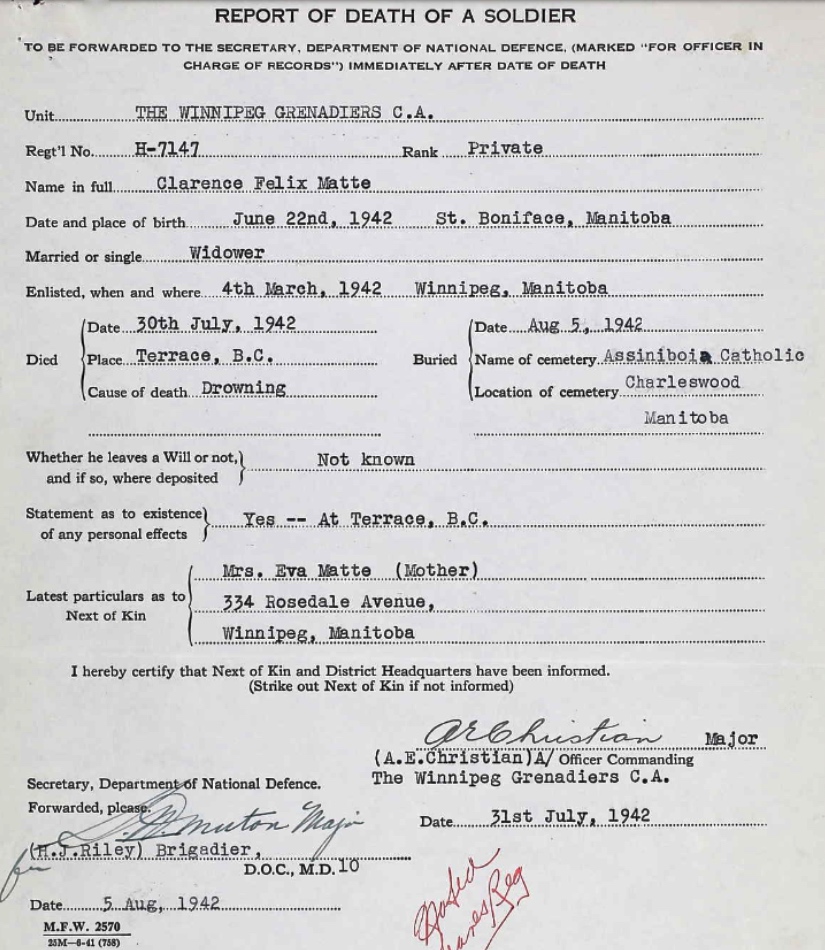 REPORT OF DEATH OF A SOLDIER
TO BE FORWARDED TO THE SECRETARY, DEPARTMENT OF NATIONAL DEFENCE, (MARKED "FOR OFFICER IN
CHARGE OF RECORDS") IMMEDIATELY AFTER DATE OF DEATH
Unit THE WINNIPEG GRENADIERS C.A.
Regt'l No. H-7147 Rank Private
Name in full Clarence Felix Matte
Date and place of birth June 22nd, 1942 St. Boniface, Manitoba
Married or single Widower
Enlisted, when and where 4th March, 1942 Winnipeg, Manitoba
Died
Date 30th July, 1942
Place Terrace, B.C.
Cause of death Drowning
Buried
Date Aug 5, 1942
Name of cemetery Assiniboia Catholic
Location of cemetery Charleswood
Manitoba
Whether he leaves a Will or not,
and if so, where deposited
Not known
Statement as to existence
of any personal effects
Yes -- At Terrace, B.C.
Latest particulars as to
Next of Kin
Mrs. Eva Matte (Mother)
334 Rosedale Avenue,
Winnipeg, Manitoba
I hereby certify that Next of Kin and District Headquarters have been informed.
(Strike out Next of Kin if not informed)
AEChristian Major
(A.E.Christian)A/ Officer Commanding
The Winnipeg Grenadiers C.A.
Secretary, Department of National Defence.
Forwarded, please.
Major
Date 31st July, 1942
for (H.J.Riley) Brigadier,
D.O.C., M.D. 10
Date 5 Aug, 1942
M.F.W. 2570
25M—6-41 (758)
Noted
Reg